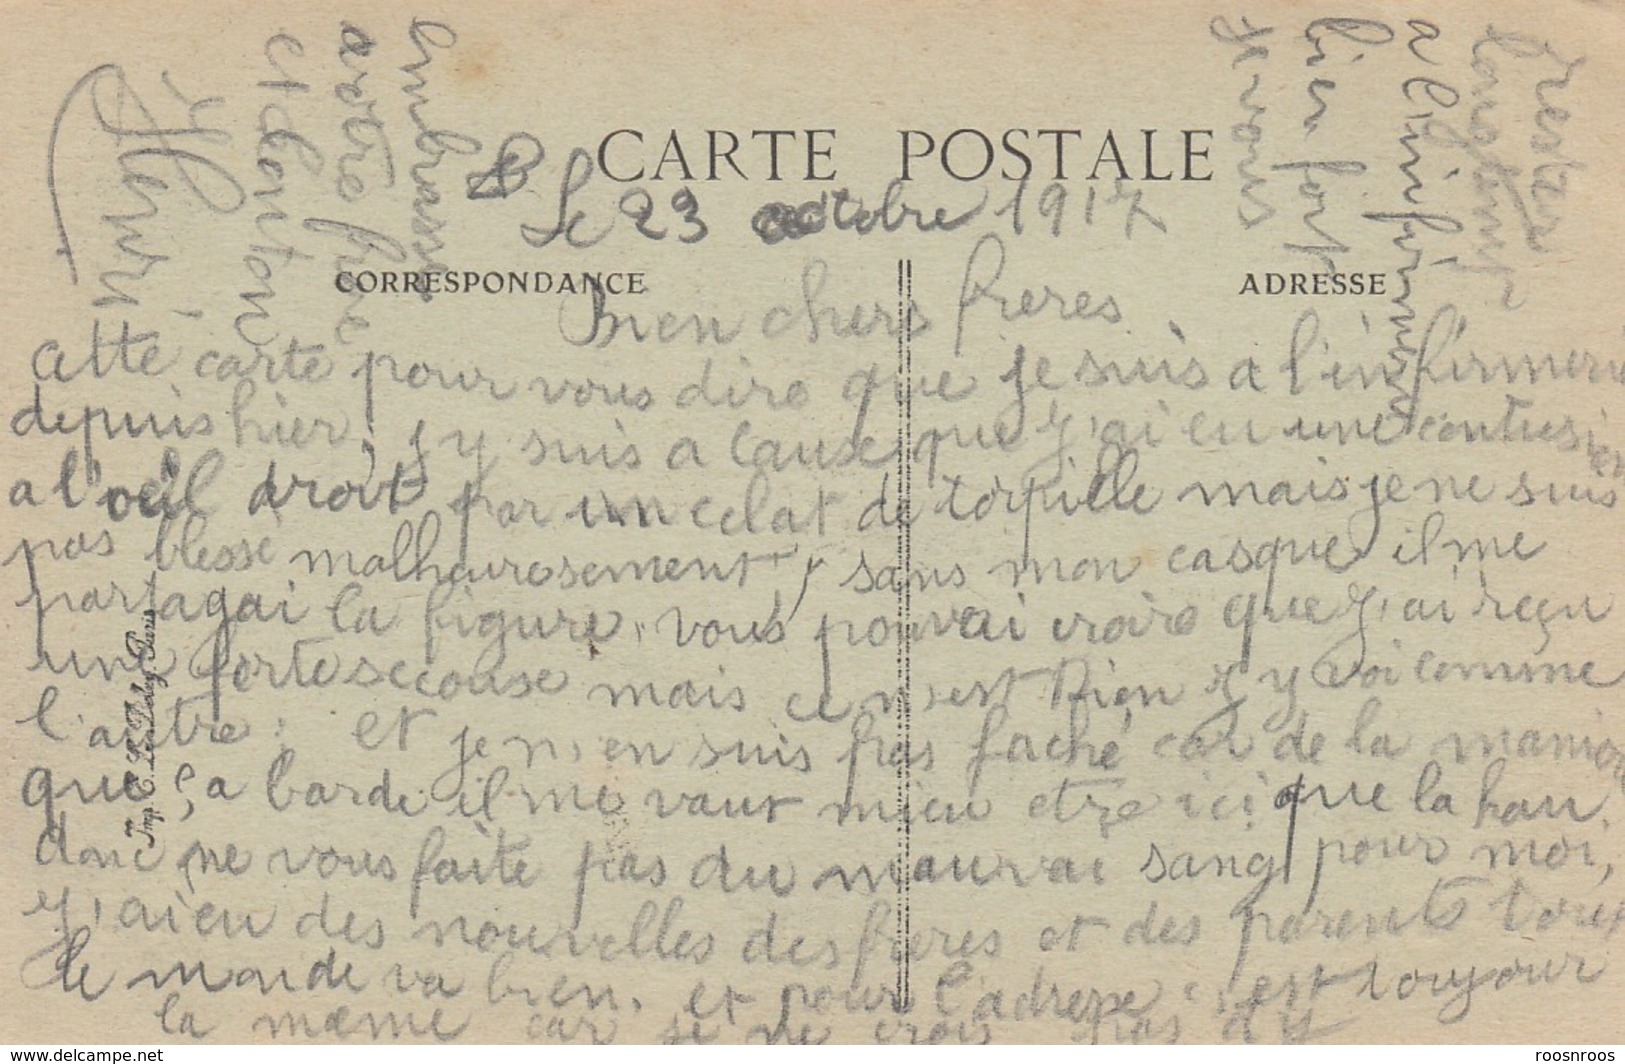 CARTE POSTALE
Le 23 octobre 1917
CORRESPONDANCE
ADRESSE
mon chers freres
cette carte pour vous dire que je suis a l'infirmerie
depuis hier, j'y suis a cause que j'ai eu une contusion
a l'oeil droit par un eclat de torpille mais je ne suis
pas blessé malheurosement, sans mon casque il me
partagai la figure, vous pouvai croire que j'ai reçu
une forte secouse mais ce n'est rien j'y voi comme
l'autre : et je n'en suis pas faché car de la maniore
que ça barde il me vaut mieu etre ici que la hau.
donc ne vous faite pas du mauvai sang pour moi,
j'ai eu des nouvelles des freres et des parents tout
le monde va bien. et pour l'adresse c'est toujour
la mæme car je ne crois pas d'y
rester
longtemp
a l'infirmerie
bien fort
je vous
embrasse
votre frere
et
Henri
Imp. E. Le Deley, Paris
www.delcampe.net
roosnroos